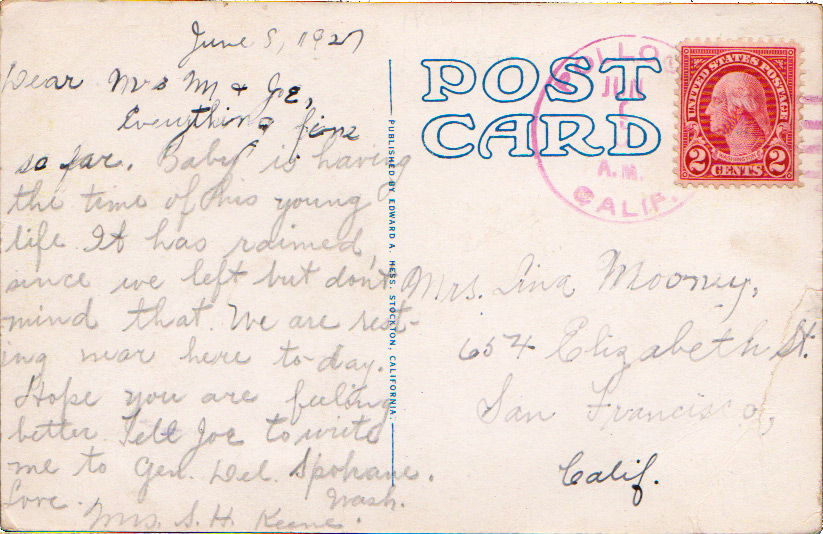 June 5, 1927
Dear Mrs M & Joe,
Everything fine
so far. Baby is having
the time of his young
life. It has rained,
since we left but don't
mind that. We are rest-
ing near here to-day.
Hope you are feeling
better. Tell Joe to write
me to Gen. Del. Spokane.
Wash.
Love.
Mrs. S. H. Keene.
PUBLISHED BY EDWARD A. HESS, STOCKTON, CALIFORNIA.
POST
CARD
JUN
5
A.M.
CALIF.
UNITED STATES POSTAGE
WASHINGTON
2 CENTS 2
Mrs. Lina Mooney,
654 Elizabeth St.
San Francisco,
Calif.